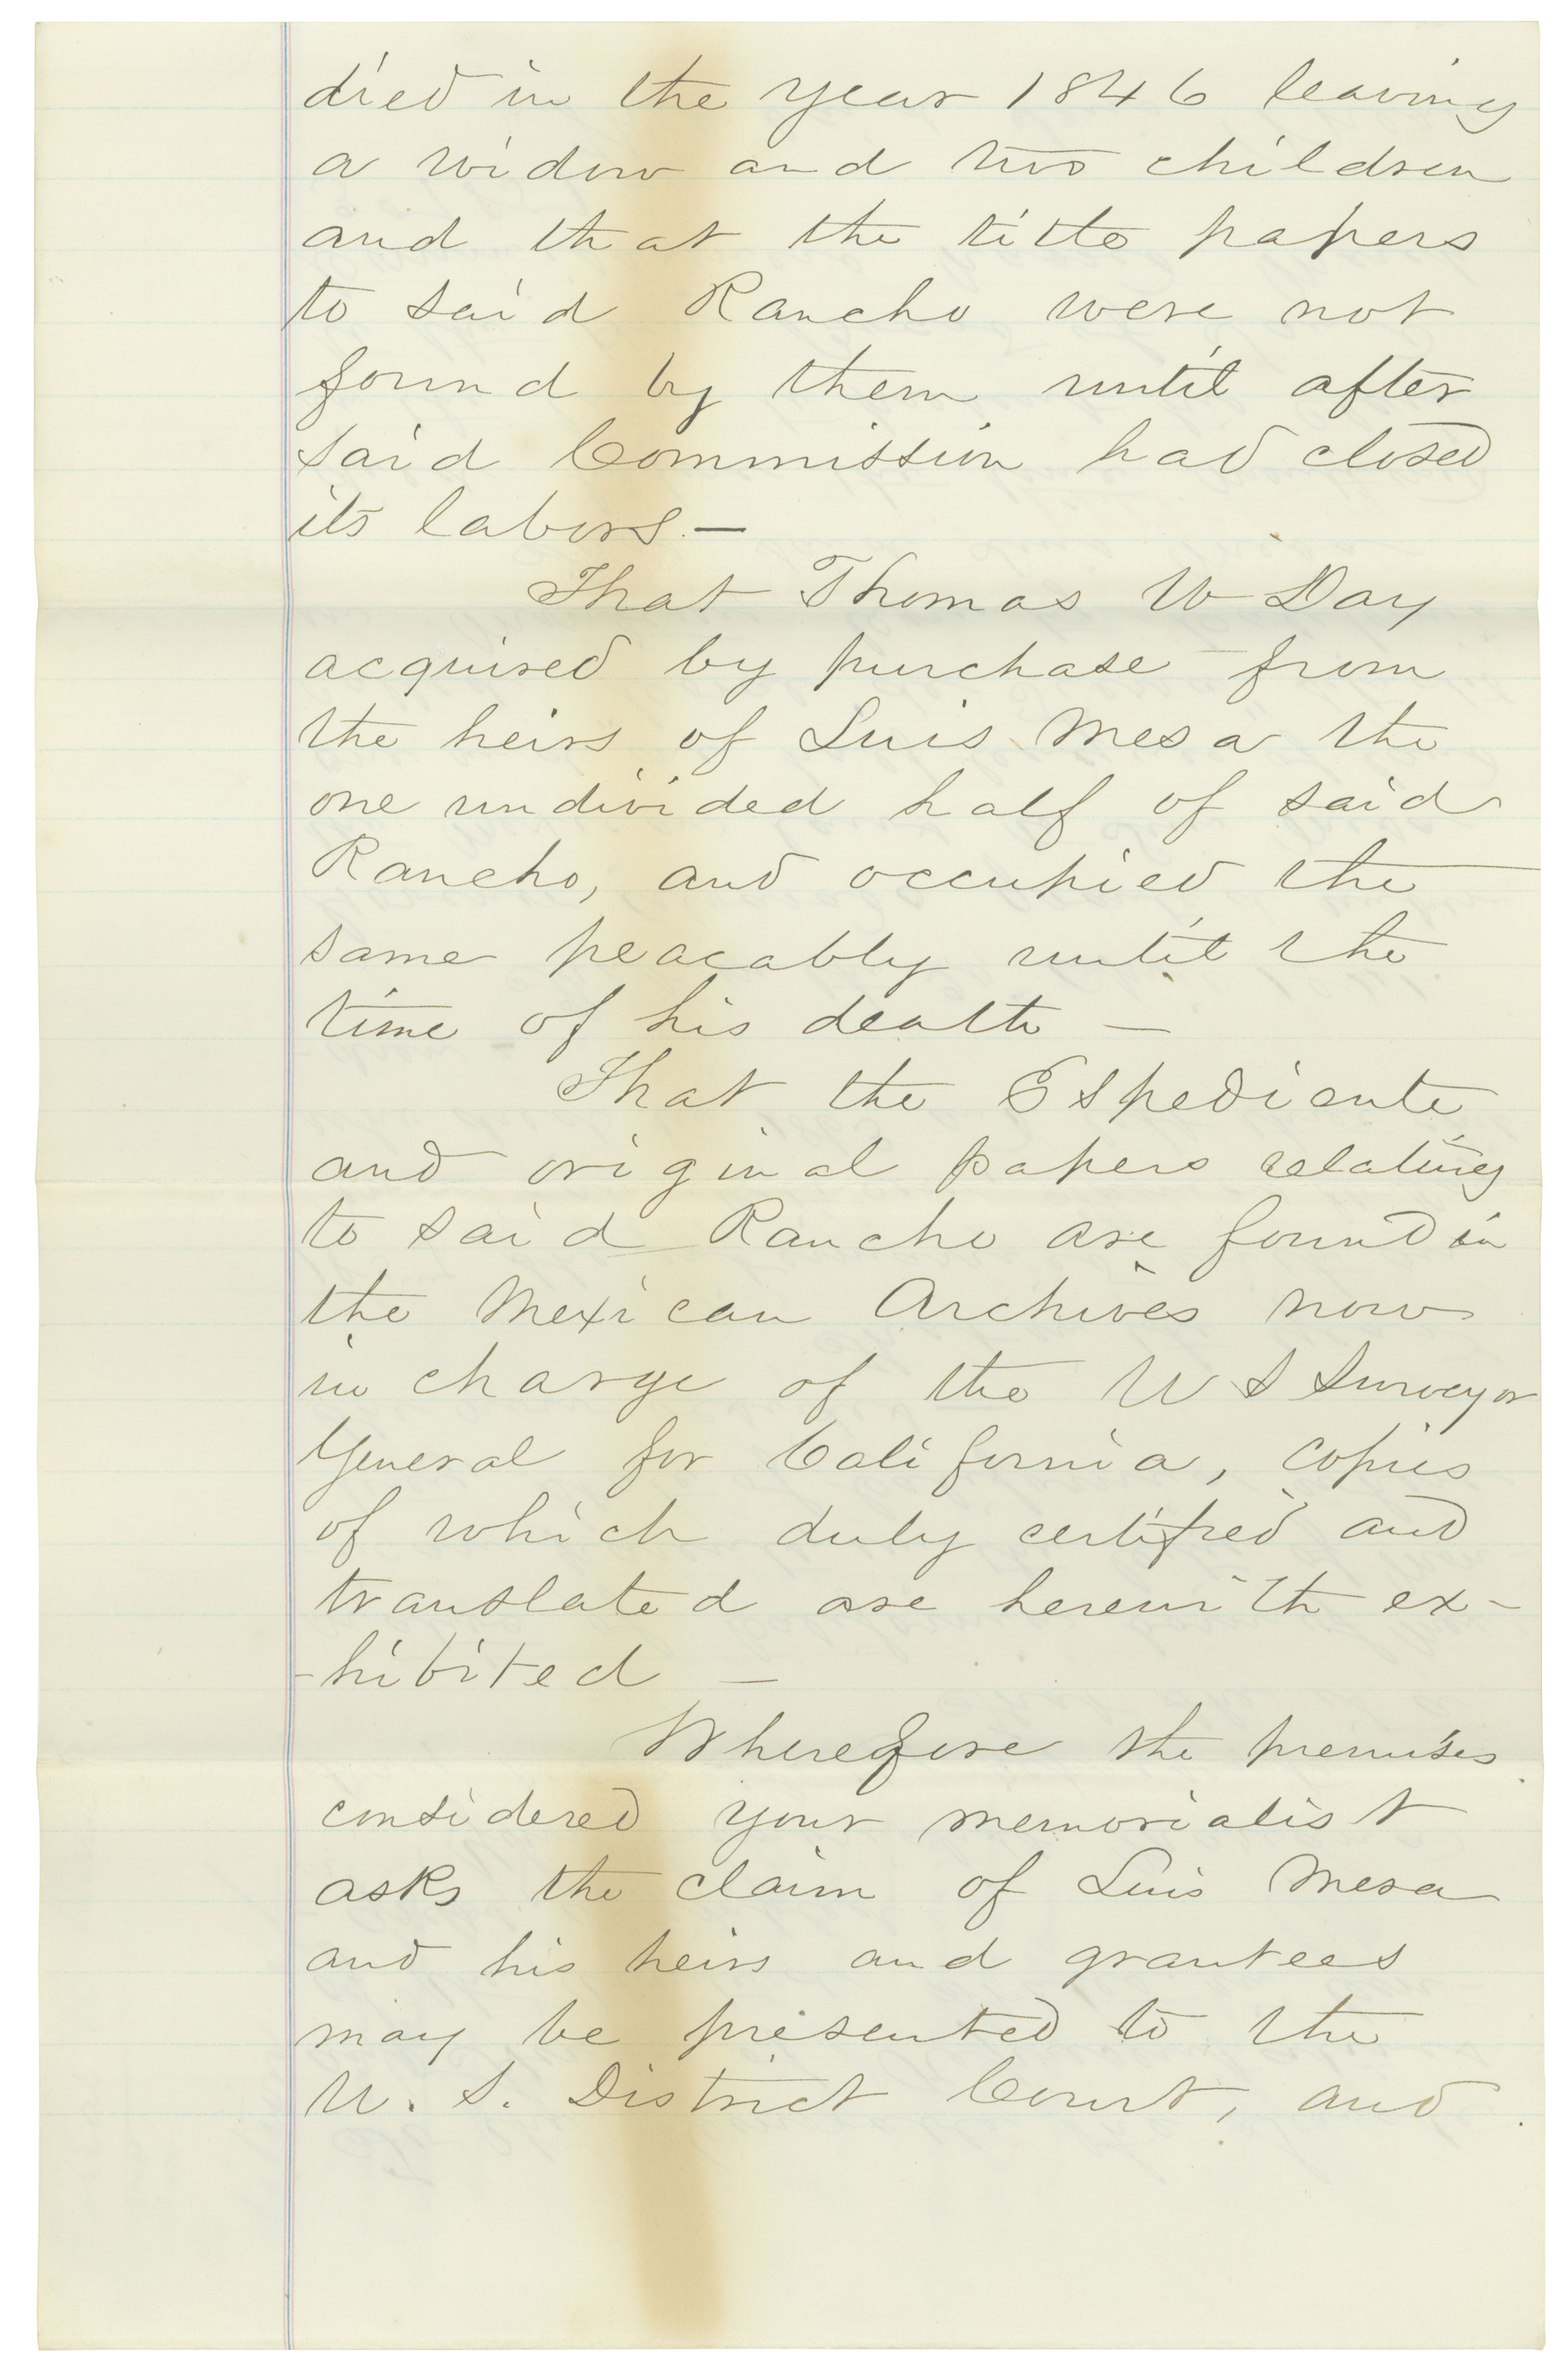 died in the year 1846 leaving
a widow and two children
and that the title papers
to said Rancho were not
found by them until after
said Commission had closed
its labors. —
That Thomas W Day
acquired by purchase from
the heirs of Luis Mesa the
one undivided half of said
Rancho, and occupied the
same peacably until the
time of his death —
That the Espediente
and original papers relating
to said Rancho are found in
the Mexican Archives now
in charge of the U S Surveyor
General for California, copies
of which duly certified and
translated are herewith ex-
-hibited —
Wherefore the premises
considered your memorialist
asks the claim of Luis Mesa
and his heirs and grantees
may be presented to the
U. S. District Court, and